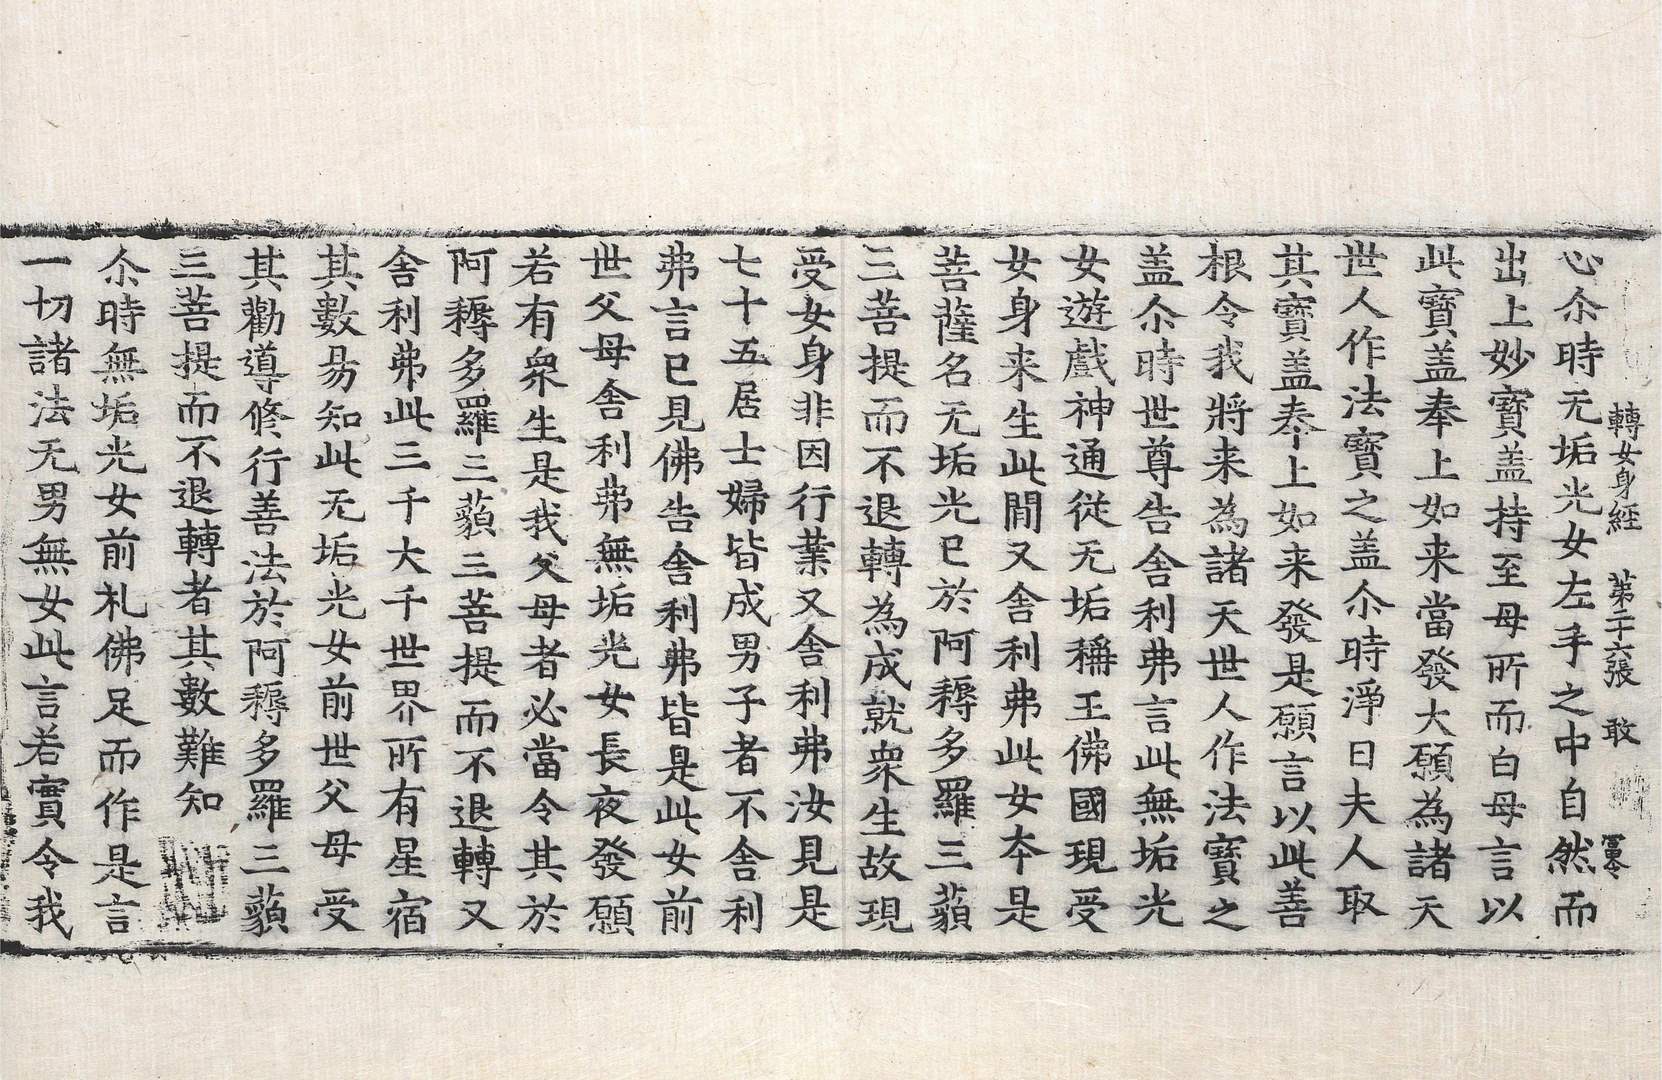 轉女身經 第二十六張 敢
心尒時无垢光女左手之中自然而
出上妙寶盖持至母所而白母言以
此寶盖奉上如来當發大願為諸天
世人作法寶之盖尒時淨日夫人取
其寶盖奉上如来發是願言以此善
根令我將来為諸天世人作法寶之
盖尒時世尊告舎利弗言此無垢光
女遊戲神通從无垢稱王佛國現受
女身来生此間又舎利弗此女本是
菩薩名无垢光已於阿耨多羅三藐
三菩提而不退轉為成就衆生故現
受女身非因行業又舎利弗汝見是
七十五居士婦皆成男子者不舎利
弗言已見佛告舎利弗皆是此女前
世父母舎利弗無垢光女長夜發願
若有衆生是我父母者必當令其於
阿耨多羅三藐三菩提而不退轉又
舎利弗此三千大千世界所有星宿
其數易知此无垢光女前世父母受
其勸導修行善法於阿耨多羅三藐
三菩提而不退轉者其數難知
尒時無垢光女前礼佛足而作是言
一切諸法无男無女此言若實令我